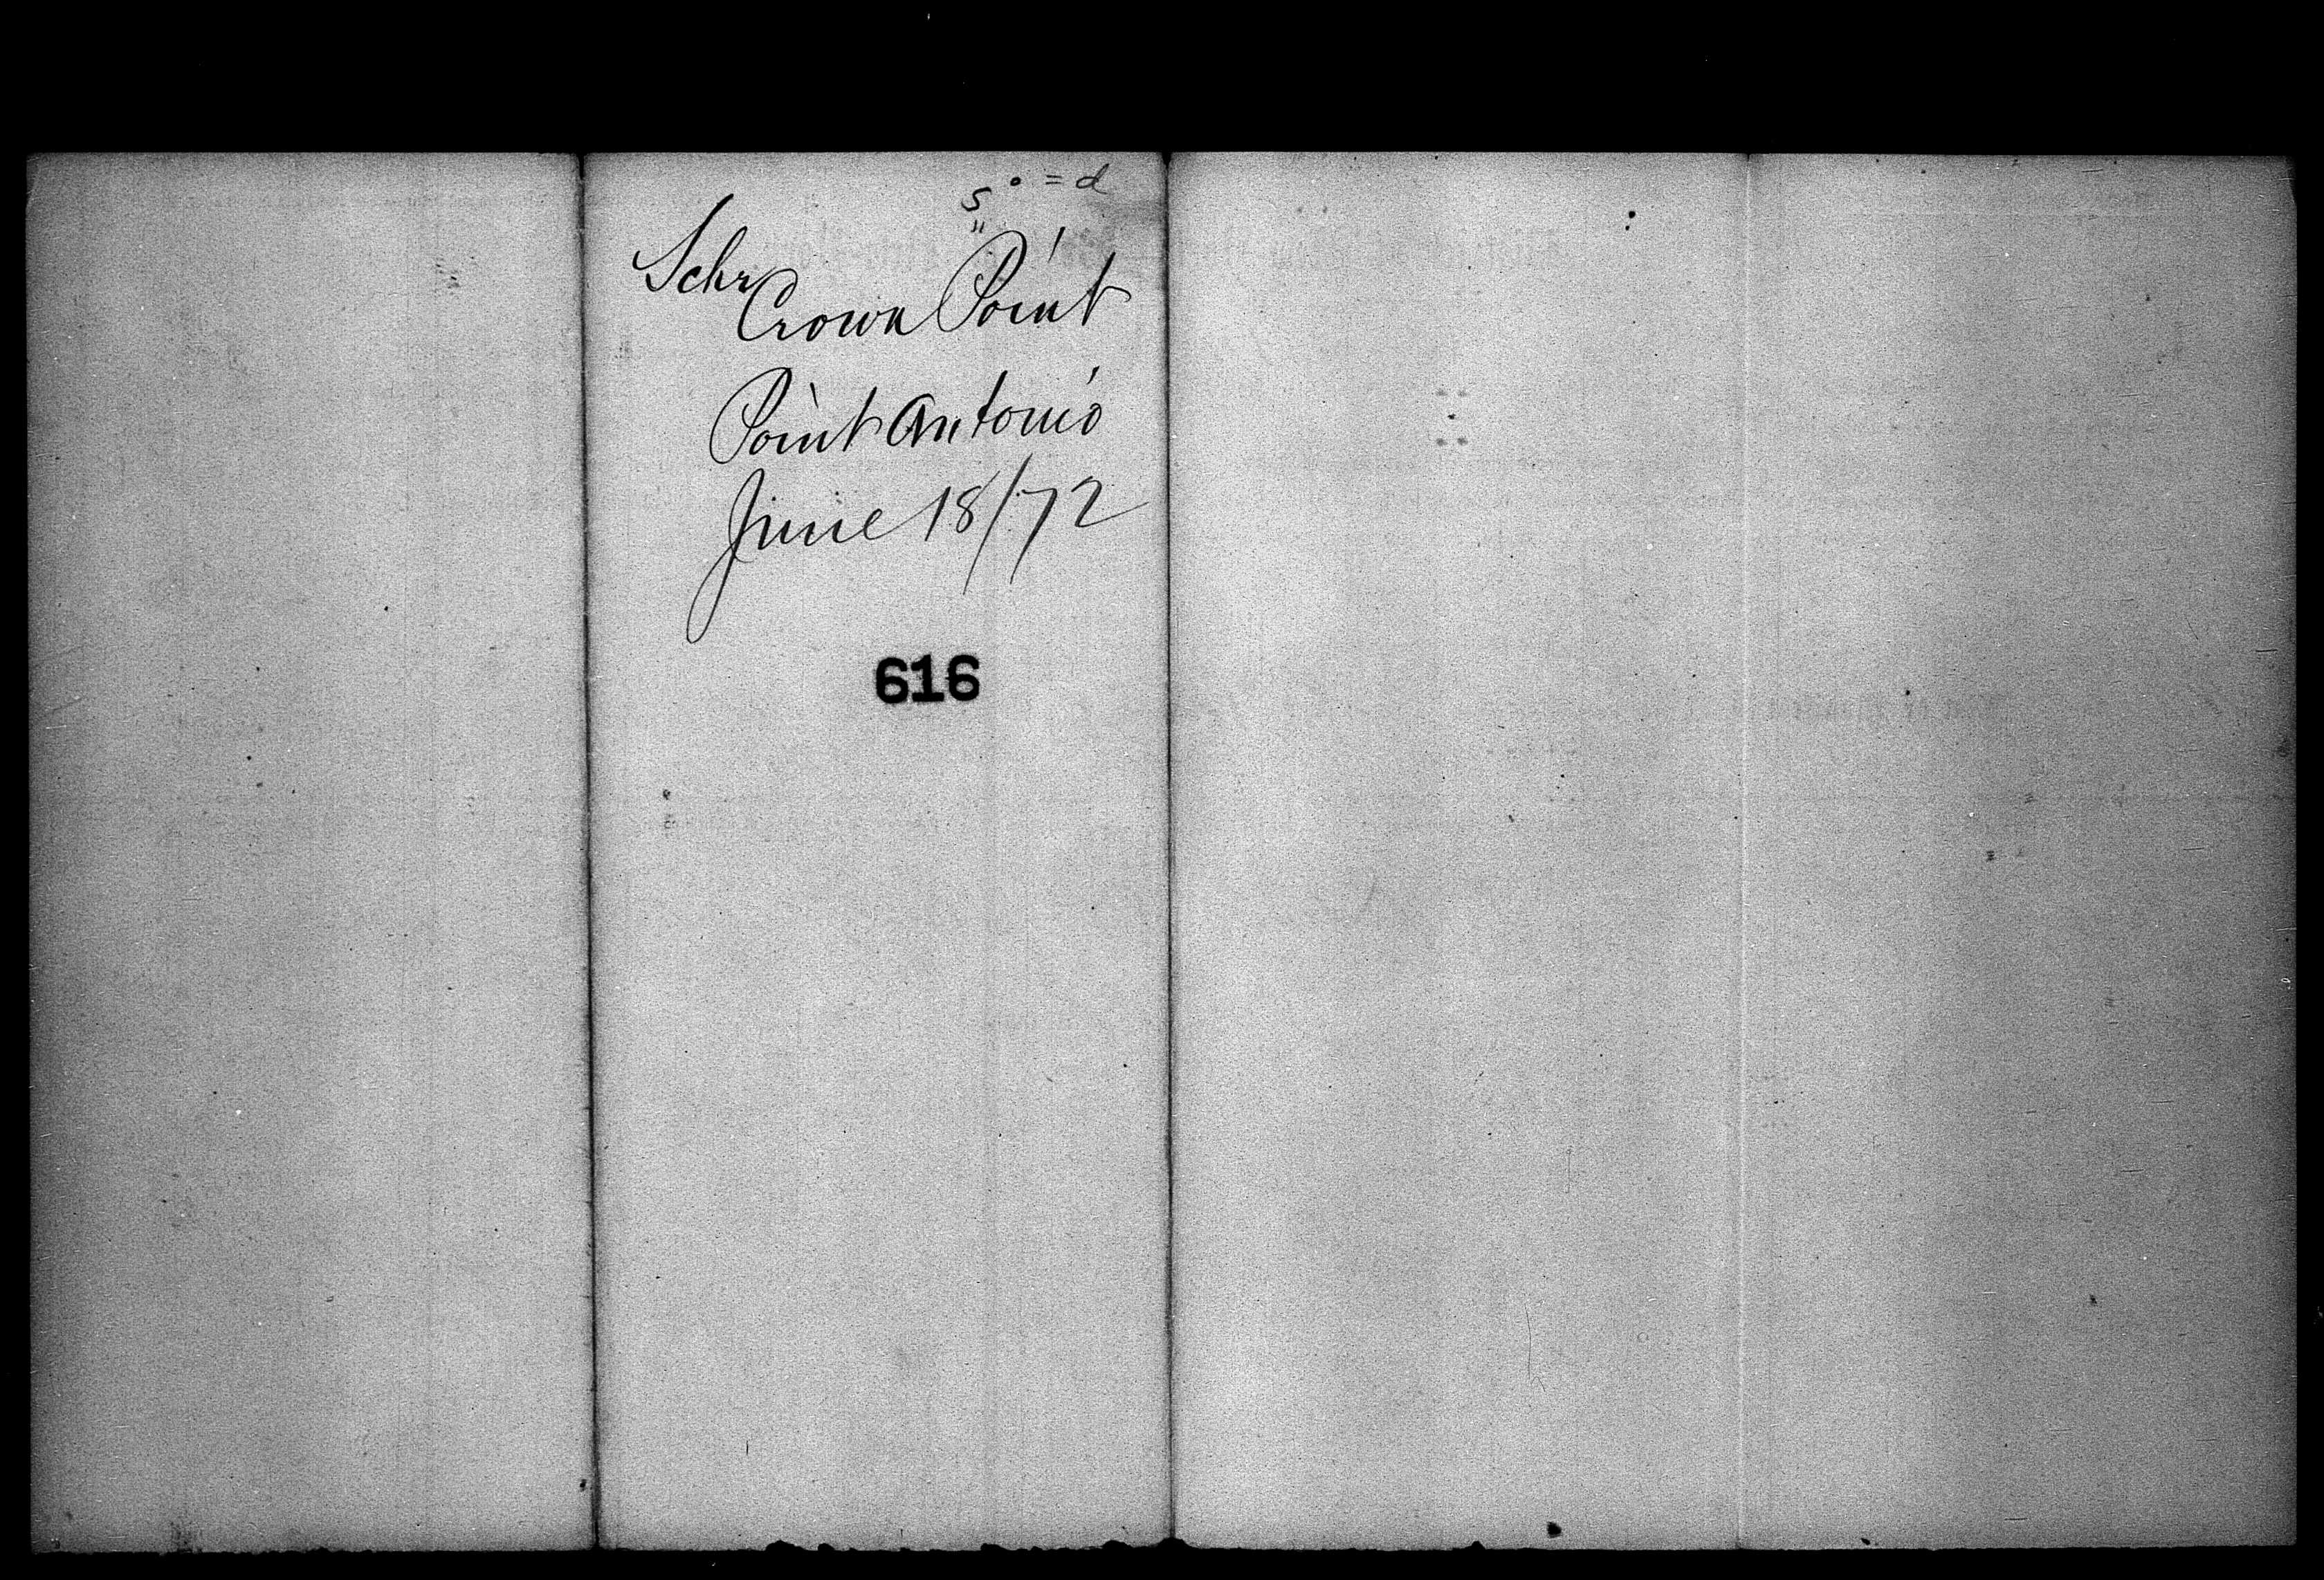 Schr
Crown Point
Point Antonio
June 18/72
616